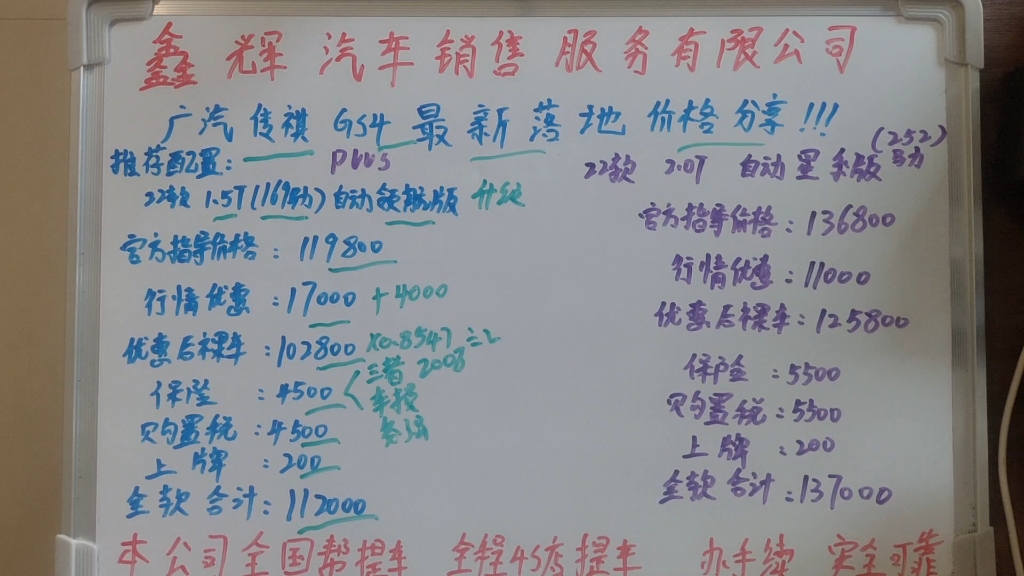 鑫辉汽车销售服务有限公司
广汽传祺 GS4 最新落地价格分享!!!
推荐配置: PLUS
22款 1.5T(169马力)自动领航版 升级
官方指导价格:119800
行情优惠:17000 +4000
优惠后裸车:102800 x0.8547
保险:4500 三者 200万
车损
购置税:4500
上牌:200
全款合计:112000
22款 2.0T 自动星系版 (252)马力
官方指导价格:136800
行情优惠:11000
优惠后裸车:125800
保险:5500
购置税:5500
上牌:200
全款合计:137000
本公司全国帮提车 全程4S店提车 办手续 安全可靠